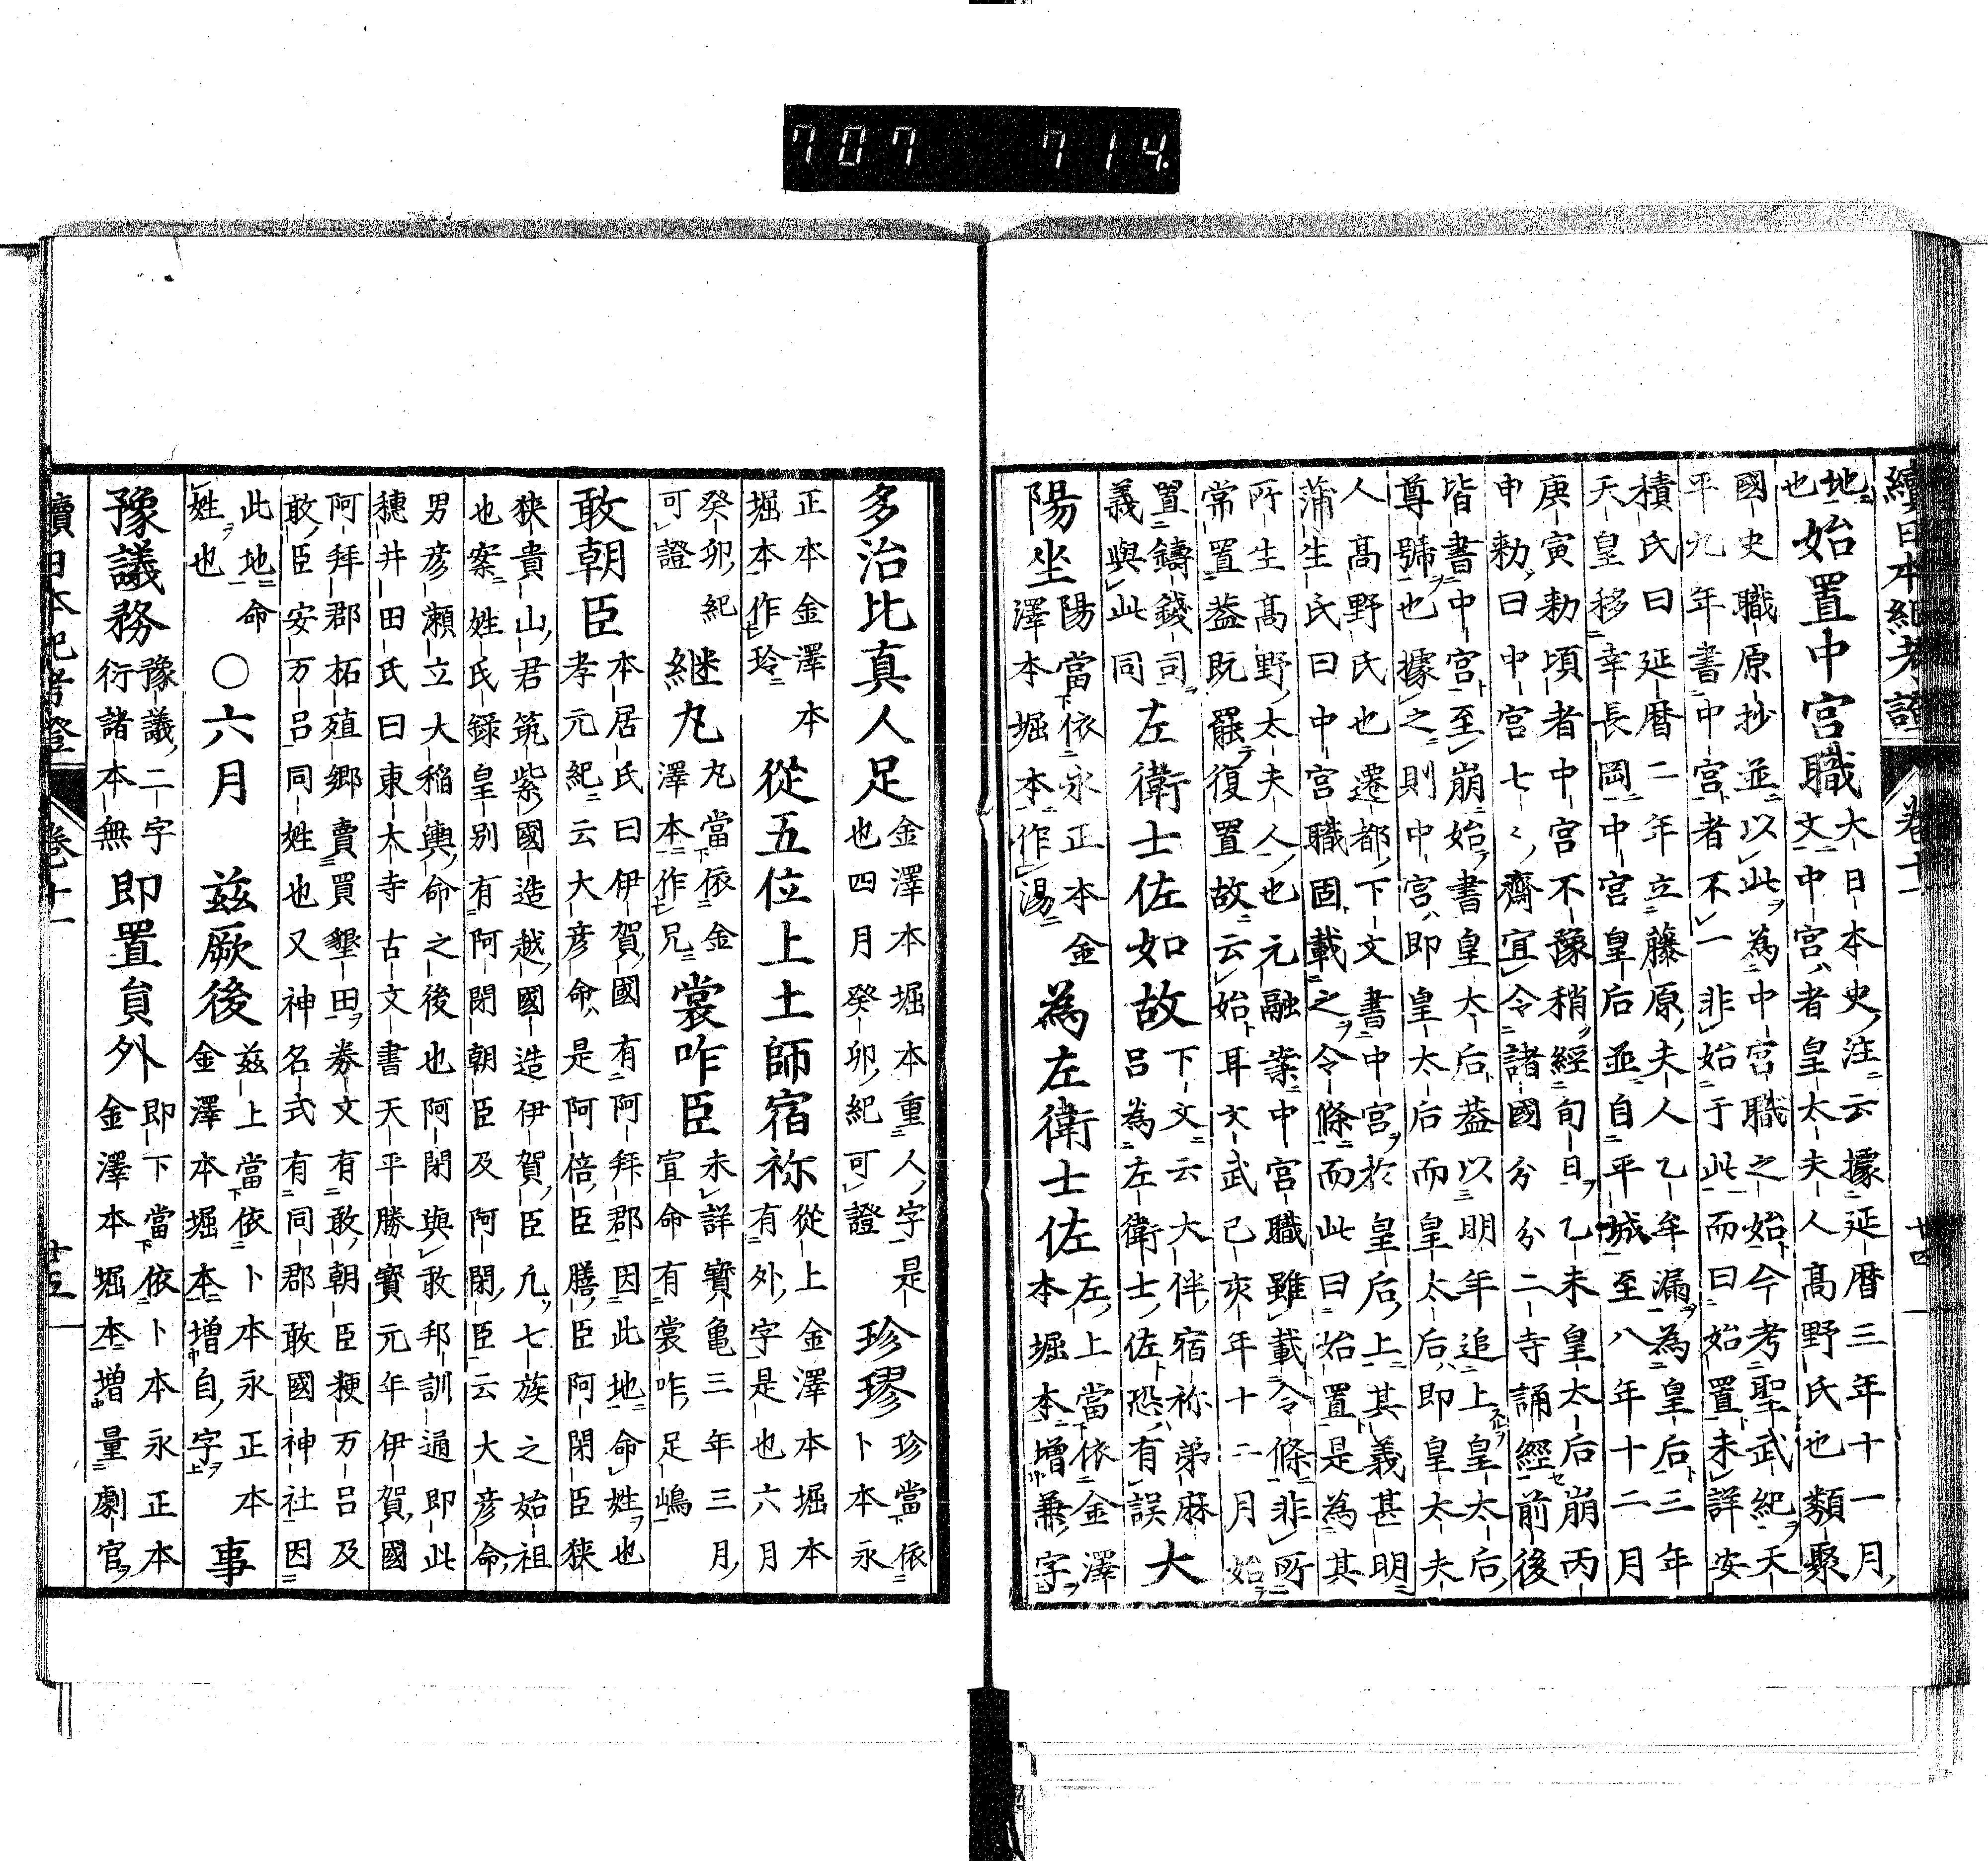 續日本紀考證 卷十一 廿四
地
也
始置中宮職
大日本史注云據延曆三年十一月
文中宮者皇太夫人髙野氏也類聚
國史職原抄並以此為中宮職之始今考聖武紀天
平九年書中宮者不一非始于此而曰始置未詳安
積氏曰延曆二年立藤原夫人乙牟漏為皇后三年
天皇移幸長岡中宮皇后並自平城至八年十二月
庚寅勅頃者中宮不豫稍經旬日乙未皇太后崩丙
申勅曰中宮七〻齊宜令諸國分分二寺誦經前後
皆書中宮至崩始書皇太后蓋以明年追上皇太后
尊號也據之則中宮即皇太后而皇太后即皇太夫
人髙野氏也遷都下文書中宮於皇后上其義甚明
蒲生氏曰中宮職固載之令條而此曰始置是為其
所生髙野太夫人也元融案中宮職雖載令條非所
常置蓋既罷復置故云始耳文武己亥年十二月始
置鑄錢司
義與此同
左衛士佐如故
下文云大伴宿祢弟麻
呂為左衛士佐恐有誤
大
陽坐
陽當依永正本金
澤本堀本作湯
為左衛士佐
左上當依金澤
本堀本增兼字
多治比真人足
金澤本堀本重人字是
也四月癸卯紀可證
珍璆
珍當依
卜本永
正本金澤本
堀本作玲
從五位上土師宿祢
從上金澤本堀本
有外字是也六月
癸卯紀
可證
継丸
丸當依金
澤本作兄
裳咋臣
未詳寶龜三年三月
宜命有裳咋足嶋
敢朝臣
本居氏曰伊賀國有阿拜郡因此地命姓也
孝元紀云大彦命是阿倍臣膳臣阿閇臣狹
狹貴山君筑紫國造越國造伊賀臣凡七族之始祖
也案姓氏録皇別有阿閇朝臣及阿閇臣云大彦命
男彦瀬立大稲輿命之後也阿閇與敢邦訓通即此
穗井田氏曰東大寺古文書天平勝寶元年伊賀國
阿拜郡柘殖郷賣買墾田券文有敢朝臣粳万呂及
敢臣安万呂同姓也又神名式有同郡敢國神社因
此地命
姓也
○六月
兹厥後
兹上當依卜本永正本
金澤本堀本增自字
事
豫議務
豫議二字
衍諸本無
即置員外
即下當依卜本永正本
金澤本堀本增量劇官
續日本紀考證 卷十一 廿五
707 714